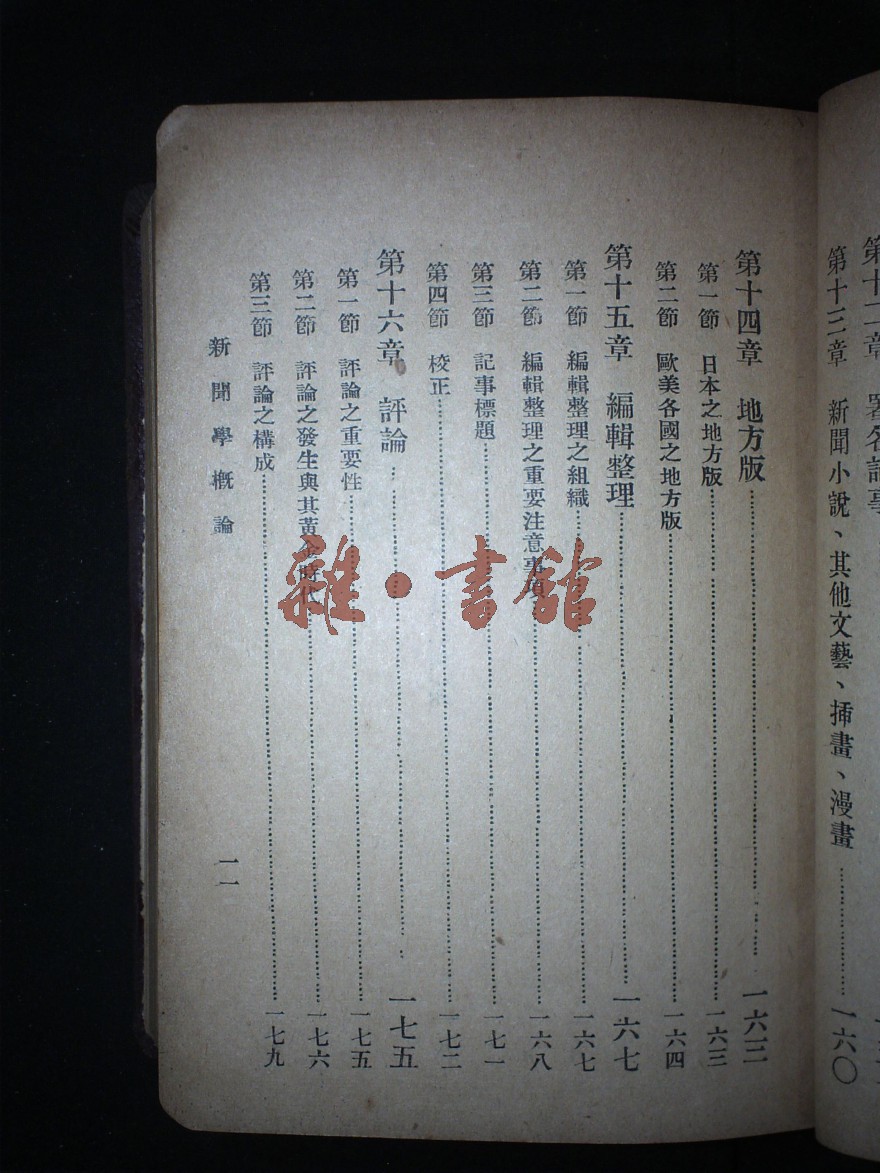 第十二章 署名記事
第十三章 新聞小說、其他文藝、挿畫、漫畫……一六〇
第十四章 地方版……一六三
第一節 日本之地方版……一六三
第二節 歐美各國之地方版……一六四
第十五章 編輯整理……一六七
第一節 編輯整理之組織……一六七
第二節 編輯整理之重要注意事項……一六八
第三節 記事標題……一七一
第四節 校正……一七二
第十六章 評論……一七五
第一節 評論之重要性……一七五
第二節 評論之發生與其黃金時代……一七六
第三節 評論之構成……一七九
新聞學概論
一一
雜·書館